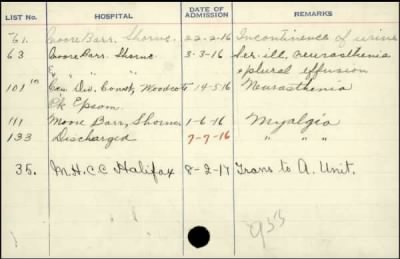 LIST No. HOSPITAL DATE OF ADMISSION REMARKS
61. Moore Barr. Shorne. 22-2-16 Incontinence of urine
63 Moore Barr. Shorne. 3-3-16 Ser. ill. neurasthenia
" " " & plural effusion
101 Can. Div. Convt, Woodcote 14-5-16 Neurasthenia
Pk Epsom.
111 Moore Barr, Shorne 1-6-16 Myalgia
133 Discharged 7-7-16 " " "
35. M.H.C.C Halifax 8-2-17 Trans to A. Unit.
953